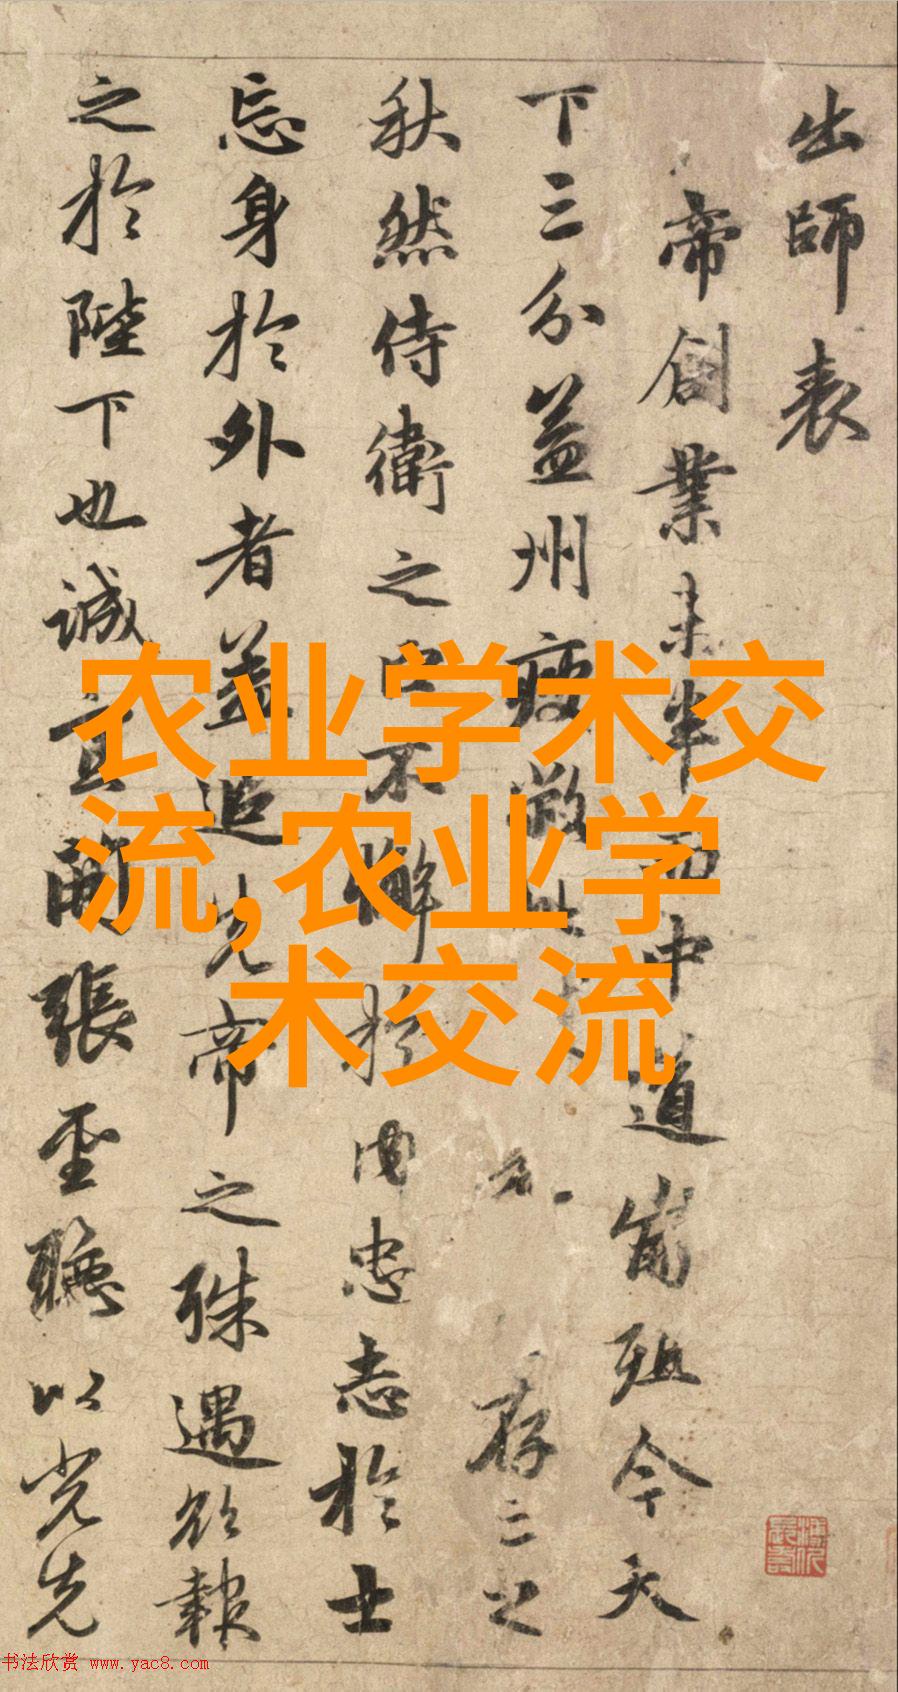 出師表
帝創業未半而中道崩殂今天
下三分益州疲敝此存亡之
秋然侍衛之臣不懈於内忠志於士
忘身於外者蓋追先帝之殊遇欲報
之於陛下也誠宜開張聖聽以光先
农业学术交
流,农业学
术交流
书法欣赏 www.yac8.com